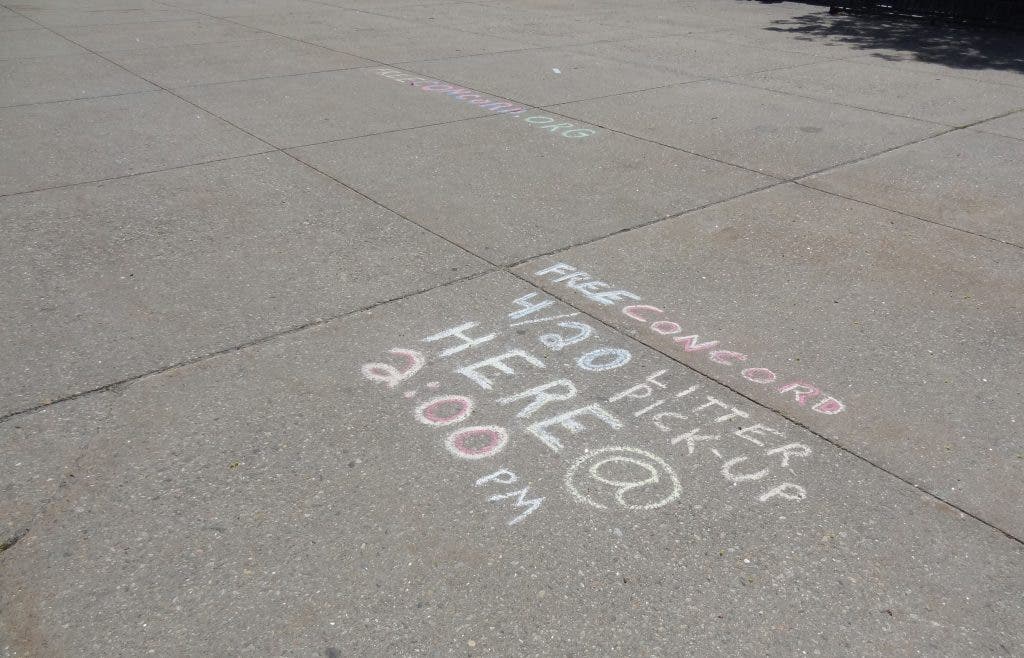 FREECONCORD.ORG
FREECONCORD
4/20 LITTER PICK-UP
HERE @
2:00 PM